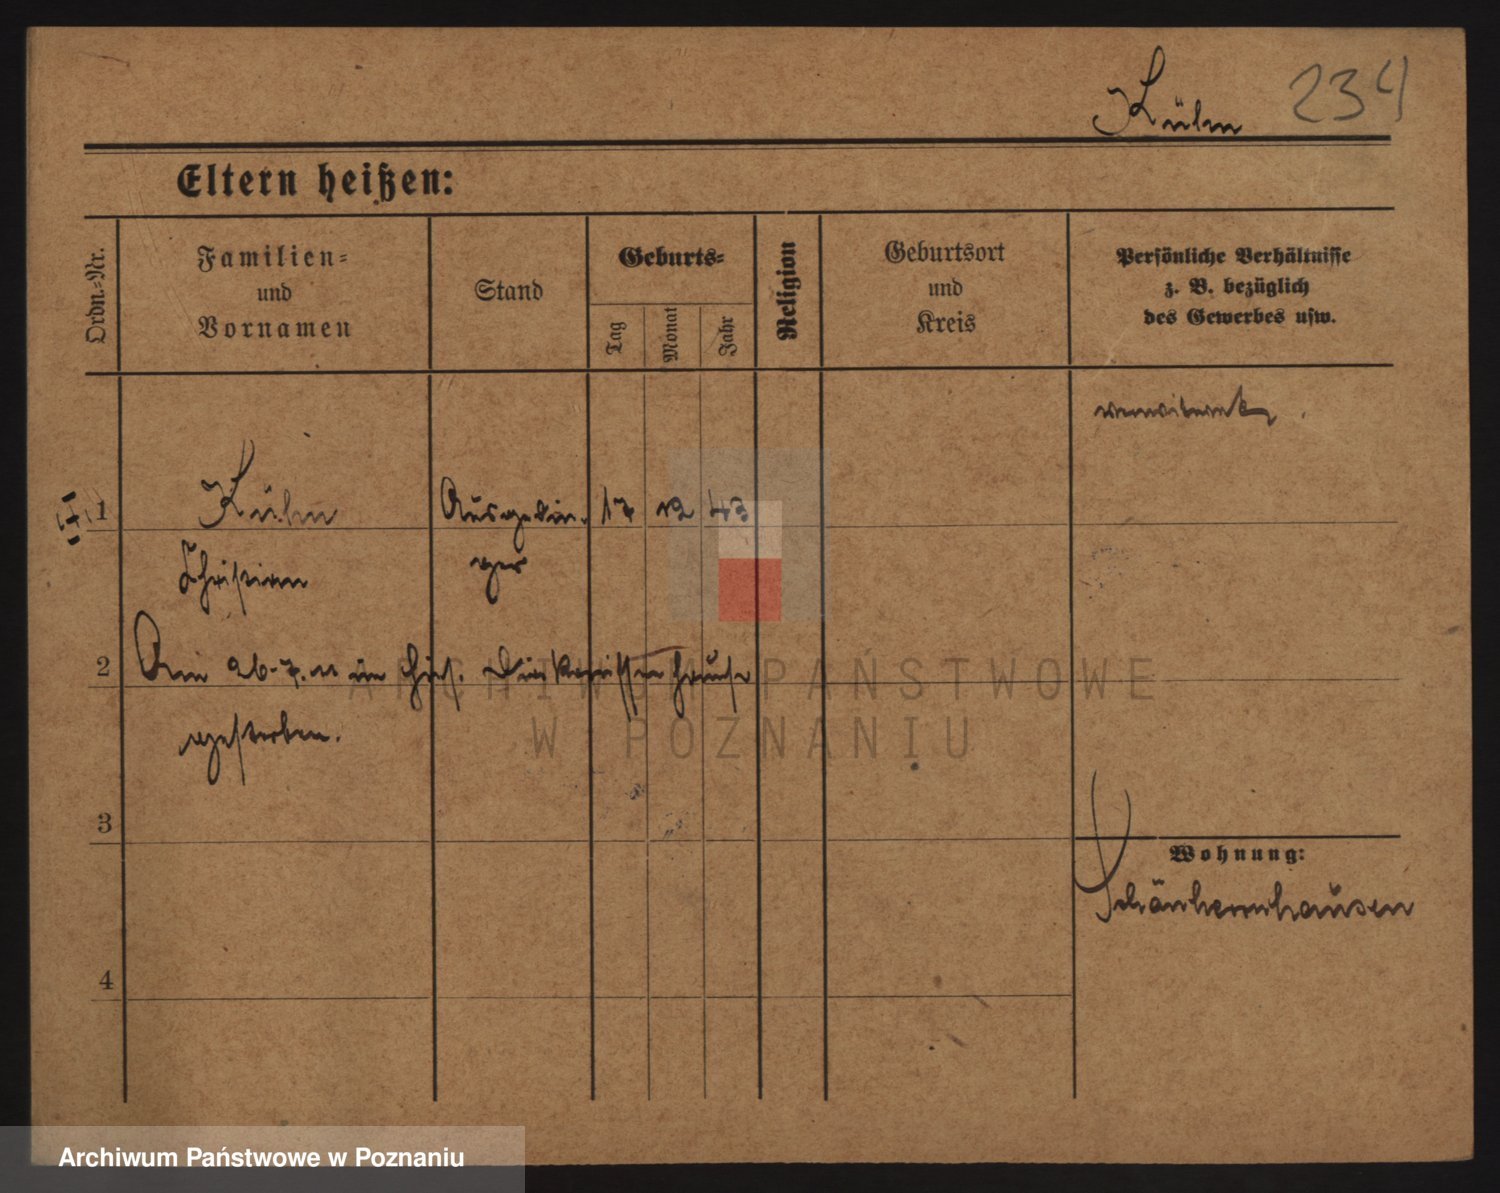 Kühn 234
Eltern heißen:
Ordn.-Nr.
Familien- und Vornamen
Stand
Geburts-
Tag
Monat
Jahr
Religion
Geburtsort und Kreis
Persönliche Verhältnisse z. B. bezüglich des Gewerbes usw.
1 Kühn Ausgedin- 17 12 43
Christian ger
2 Am 26.7.11 im hies. Diakonissenhause
gestorben.
3
Wohnung:
Schönherrnhausen
4
ARCHIWUM PAŃSTWOWE
W POZNANIU
Archiwum Państwowe w Poznaniu